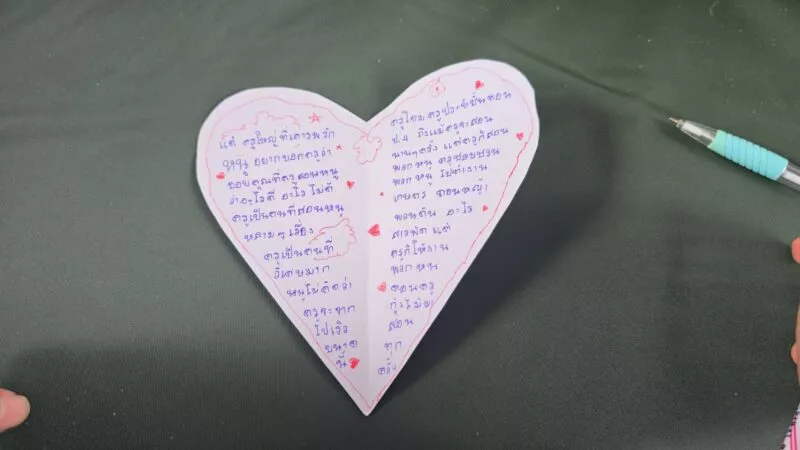 แด่ ครูใหญ่ที่เคารพรัก
หนู อยากบอกครูว่า
ขอบคุณที่ครูสอนหนู
ว่าอะไรดี อะไรไม่ดี
ครูเป็นคนที่สอนหนู
หลายๆเรื่อง
ครูเป็นคนที่
วิเศษมาก
หนูไม่คิดว่า
ครูจะจาก
ไปเร็ว
ขนาด
นี้
ครูใหญ่ ครูประจำชั้นตอน
ป.4 ถึงแม้ครูจะสอน
นานๆครั้ง แต่ครูก็สอน
พวกหนู ครูชอบชวน
พวกหนู ไปทำงาน
เกษตร ถอนหญ้า
พรวนดิน อะไร
สารพัด แต่
ครูก็ให้งาน
พวกหนู
ตอนครู
ไม่
สอน
ทุก
ครั้ง